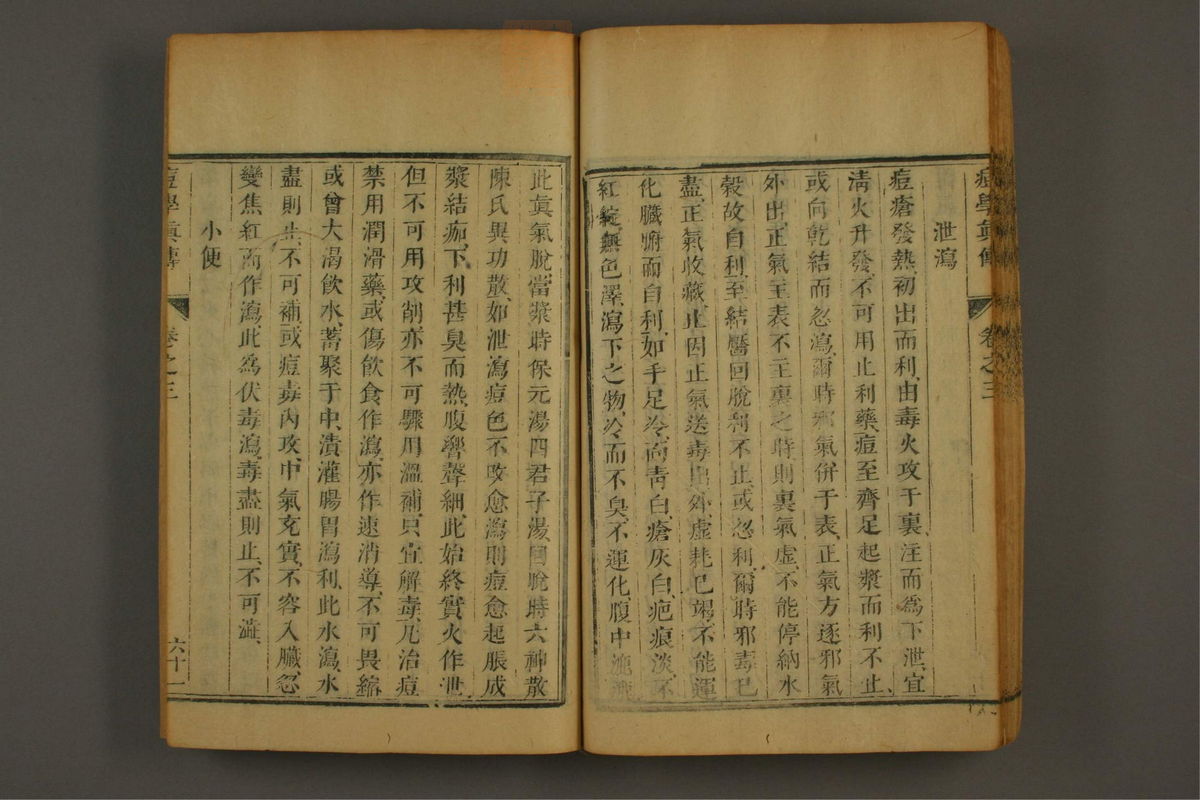 痘學眞傳 卷之三
泄瀉
痘瘡發熱、初出而利、由毒火攻于裏、注而爲下泄、宜
淸火升發、不可用止利藥、痘至齊足起漿而利不止、
或向乾結而忽瀉、爾時邪氣併于表、正氣方逐邪氣
外出、正氣主表不主裏之時、則裏氣虛、不能停納水
穀、故自利、至結靨回脫、利不止、或忽利、爾時邪毒已
盡、正氣收藏、止因正氣送毒出外、虛耗已竭、不能運
化臟腑而自利、如手足冷、面靑白、瘡灰白、疤痕淡、不
紅綻、無色澤、瀉下之物、冷而不臭、不運化、腹中
此眞氣脫、當漿時保元湯四君子湯、回脫時六神散
陳氏異功散、如泄瀉痘色不改、愈瀉則痘愈起脹成
漿結痂、下利甚臭而熱、腹響聲細、此始終實火作泄、
但不可用攻削、亦不可驟用溫補、只宜解毒、凡治痘
禁用潤滑藥、或傷飮食作瀉、亦作速消導、不可畏縮
或曾大渴飮水、蓄聚于中、漬灌腸胃瀉利、此水瀉、水
盡則止、不可補、或痘毒內攻、中氣充實、不容入臟、忽
變焦紅而作瀉、此爲伏毒瀉、毒盡則止、不可澁、
小便
痘學眞傳 卷之三 六十一